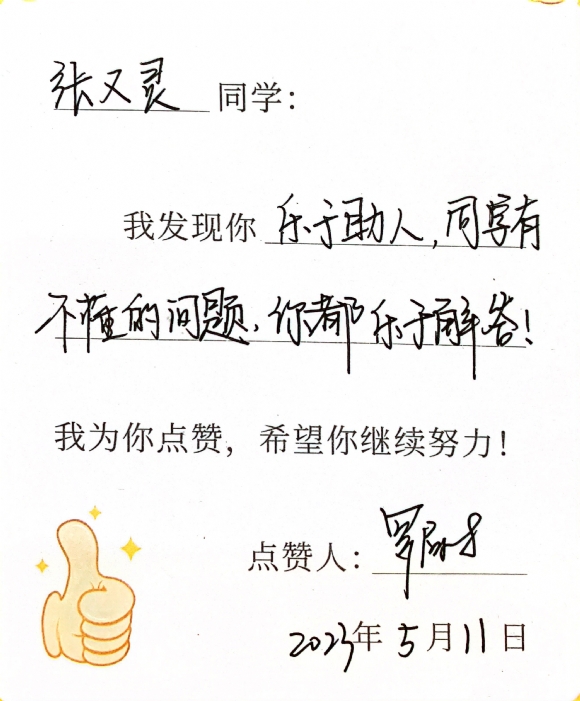 张又灵同学：
我发现你乐于助人，同学有
不懂的问题，你都乐于解答！
我为你点赞，希望你继续努力！
点赞人：罗
2023年5月11日